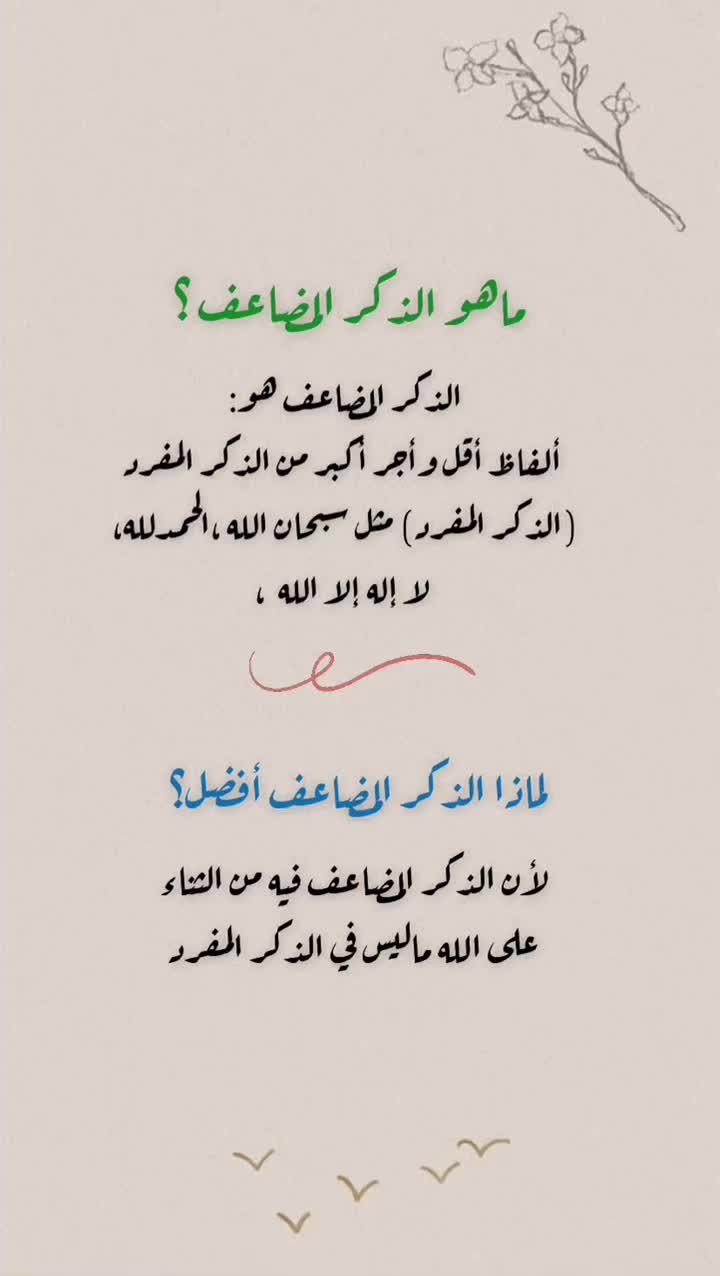 ماهو الذكر المضاعف؟
الذكر المضاعف هو:
ألفاظ أقل و أجر أكبر من الذكر المفرد
(الذكر المفرد) مثل سبحان الله ،الحمدلله،
لا إله إلا الله ،
لماذا الذكر المضاعف أفضل؟
لأن الذكر المضاعف فيه من الثناء
على الله ماليس في الذكر المفرد